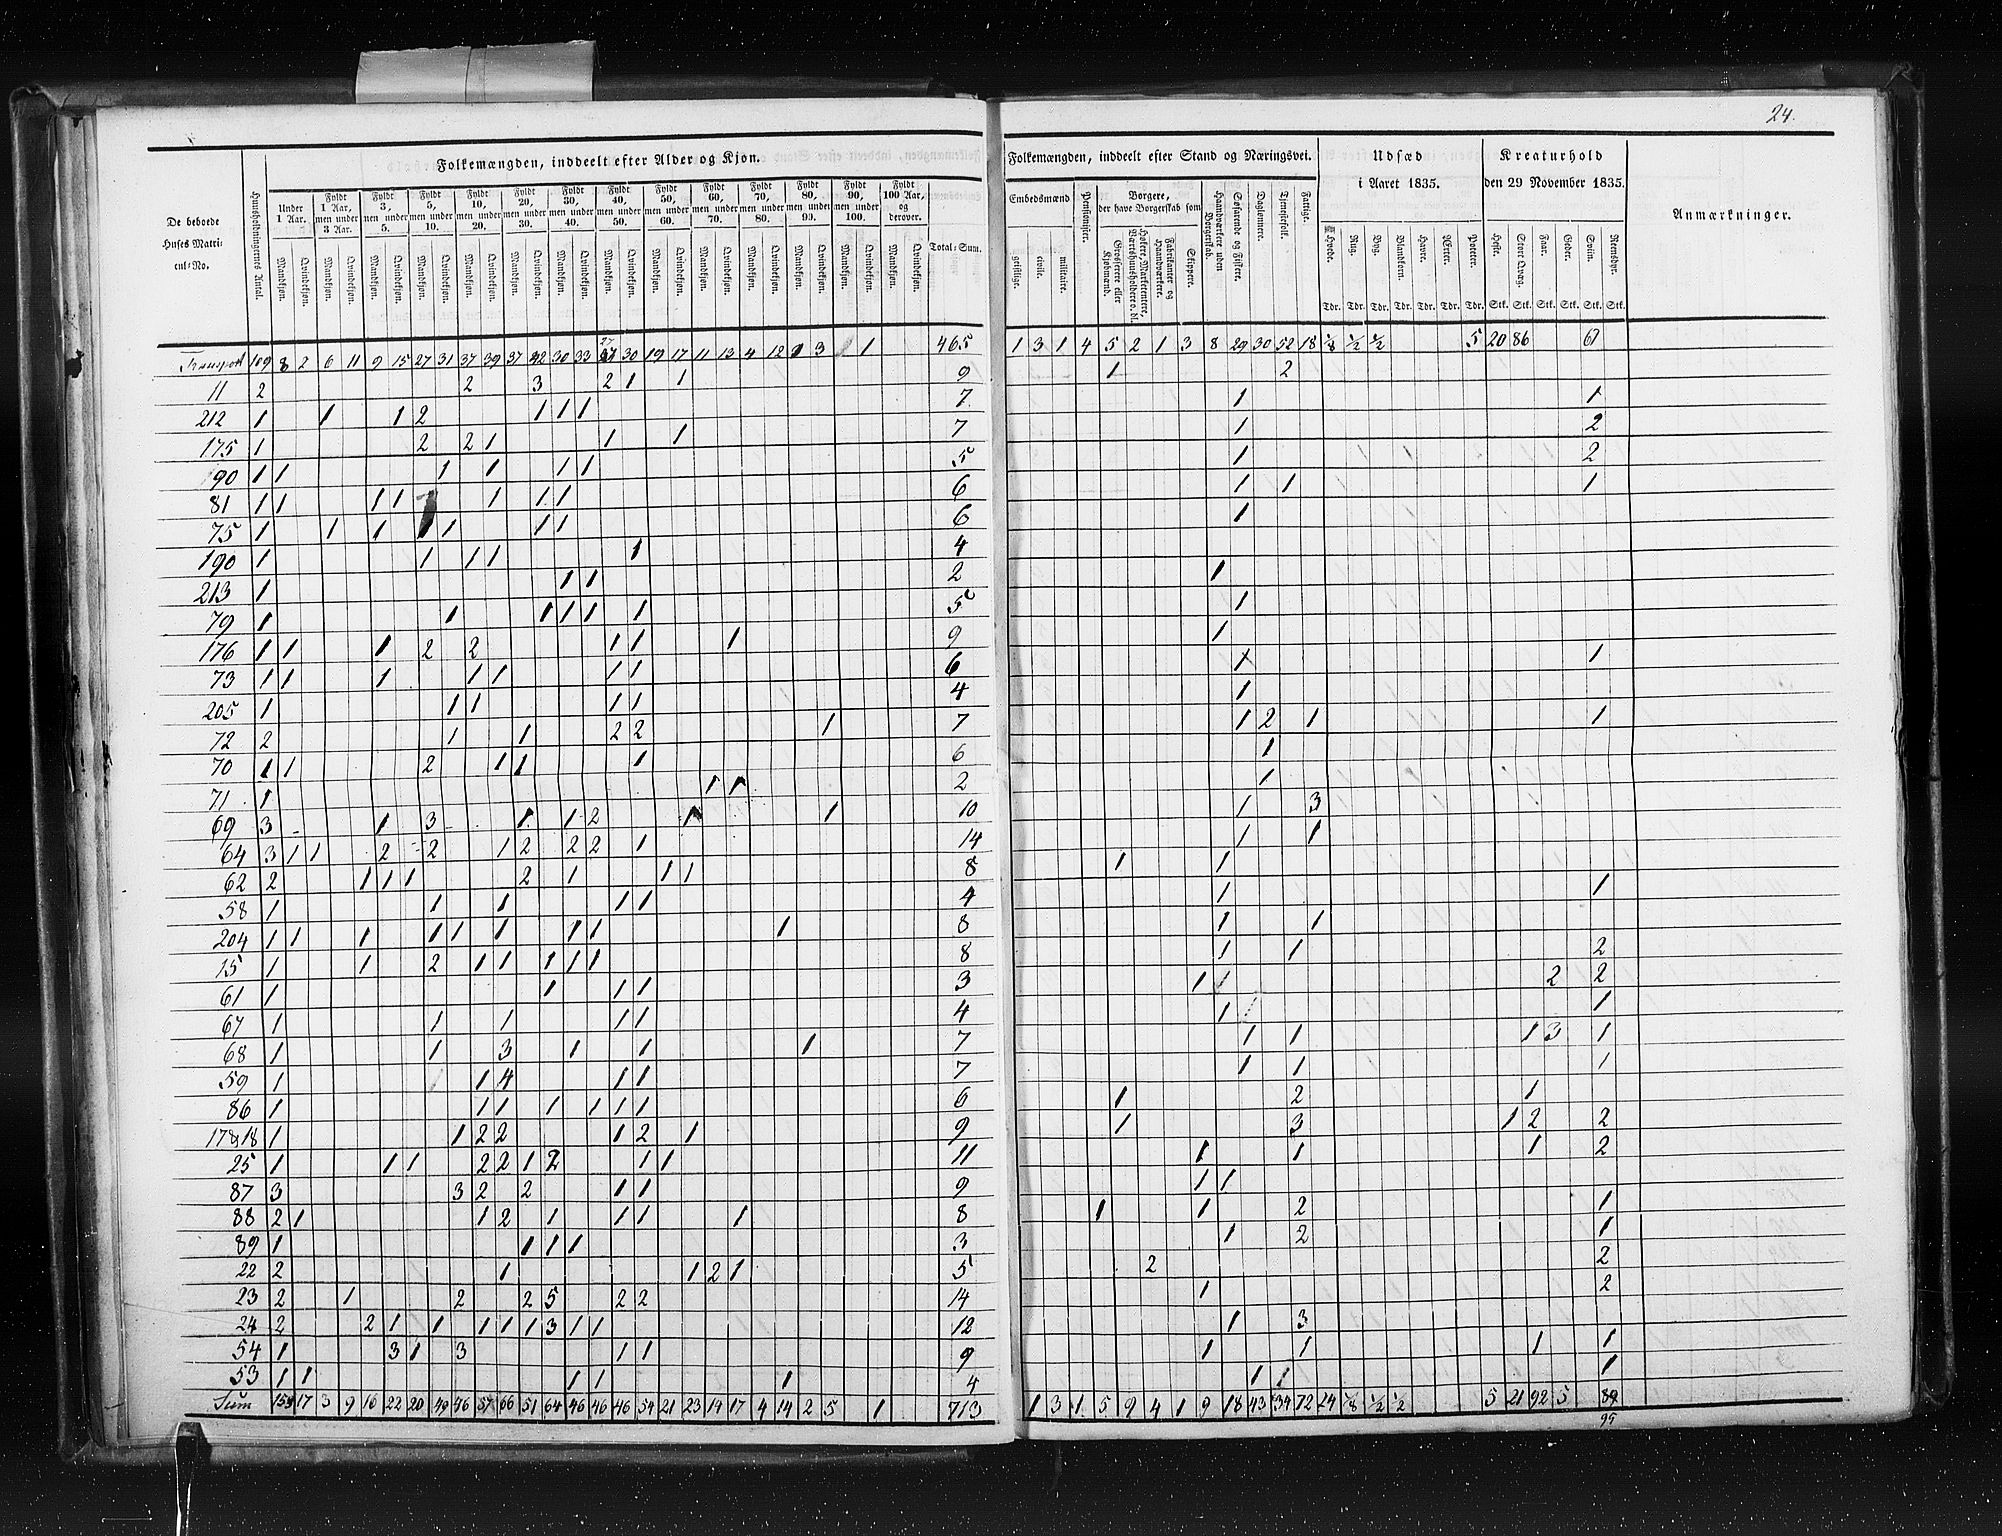 24.
Folkemængden, inddeelt efter Alder og Kjøn.
Folkemængden, inddeelt efter Stand og Næringsvei.
Udsæd i Aaret 1835.
Kreaturhold den 29 November 1835.
Anmærkninger.
De beboede Huses Matricul=No.
Huusholdningernes Antal.
Under 1 Aar.
Fyldt 1 Aar, men under 3 Aar.
Fyldt 3, men under 5.
Fyldt 5, men under 10.
Fyldt 10, men under 20.
Fyldt 20, men under 30.
Fyldt 30, men under 40.
Fyldt 40, men under 50.
Fyldt 50, men under 60.
Fyldt 60, men under 70.
Fyldt 70, men under 80.
Fyldt 80, men under 90.
Fyldt 90, men under 100.
Fyldt 100 Aar, og derover.
Mandkjøn. Qvindekjøn.
Total=Sum.
Embedsmænd
geistlige. civile. militaire.
Pensionister.
Borgere, der have Borgerskab som
Grosserere eller Kjøbmænd.
Høkere, Marketentere, Værtshuusholdere o. dl.
Fabrikanter og Haandværkere.
Skippere.
Haandværkere uden Borgerskab.
Søfarende og Fiskere.
Daglønnere.
Tjenestefolk.
Fattige.
Hvede. Rug. Byg. Blandkorn. Havre. Ærter. Poteter.
Tdr. Tdr. Tdr. Tdr. Tdr. Tdr. Tdr.
Heste. Stort Qvæg. Faar. Geder. Sviin. Reensdyr.
Stk. Stk. Stk. Stk. Stk. Stk.
Transport 109 8 2 6 11 9 15 27 31 37 39 37 42 30 33 27 30 19 17 11 13 4 12 1 3 1 465 1 3 1 4 5 2 1 3 8 29 30 52 18 1/8 1/2 1/2 5 20 86 61
11 2 2 3 2 1 1 9 1 2
212 1 1 1 2 1 1 1 7 1 1
175 1 2 2 1 1 1 7 1 2
90 1 1 1 1 1 1 5 1 2
81 1 1 1 1 1 1 1 6 1 1 1
75 1 1 1 1 1 1 6 1
190 1 1 1 1 1 4
213 1 1 1 2 1
79 1 1 1 1 1 1 5 1
176 1 1 1 2 2 1 1 1 9 1
73 1 1 1 1 1 1 1 6 1 1
205 1 1 1 1 1 4 1
72 2 1 1 2 2 1 7 1 2 1 1
70 1 1 2 1 1 1 6 1
71 1 1 1 2 1
69 3 1 3 1 1 2 1 1 10 1 3
64 3 1 1 2 2 1 2 2 2 1 14 1 1
62 2 1 1 1 2 1 1 1 8 1 1
58 1 1 1 1 1 4 1 1
204 1 1 1 1 1 1 1 1 1 8 1 1
15 1 1 2 1 1 1 1 1 8 1 1 2
61 1 1 1 1 3 1 1 2 2
67 1 1 1 1 1 4 1 1
68 1 1 3 1 1 1 7 1 1 1 3 1
59 1 1 4 1 1 7 1 1 1
86 1 1 1 1 1 1 1 6 1 2 1
17&18 1 1 2 2 1 2 1 9 1 3 1 2 2
25 1 1 1 2 2 1 2 1 1 11 1 1 1 2
87 3 3 2 2 1 1 9 1 1
88 2 1 1 2 1 1 1 1 8 1 1 2 1
89 1 1 1 1 3 1 2 1
22 2 1 1 2 1 5 2 2
23 2 1 2 2 5 2 2 14 1 2
24 2 2 1 1 1 1 1 3 1 1 12 1 3
54 1 3 1 3 1 1 9 1 1 1 1
53 1 1 1 1 1 4 1 1 1
Sum 155 17 3 9 16 22 20 49 46 57 66 51 64 46 46 46 54 21 23 14 17 4 14 2 5 1 713 1 3 1 5 9 4 1 9 18 43 34 72 24 1/8 1/2 1/2 5 21 92 5 89
95